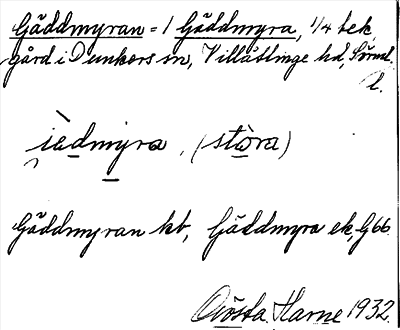 Gäddmyran = 1 Gäddmyra, 1/4 bek.
gård i Dunkers sn, Villåttinge hd, Sörml.
l.
jèdmýra, (stòra)
Gäddmyran kb, Gäddmyra ek, G66.
Gösta Harne 1932.